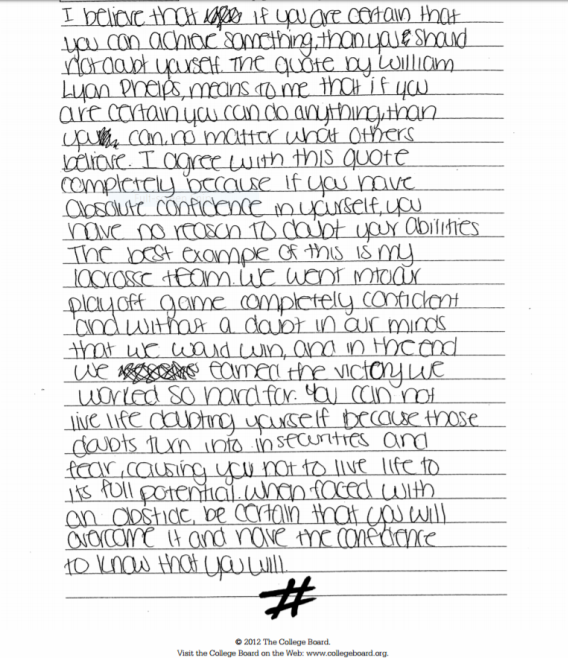 I believe that if you are certain that
you can achieve something, than you should
not doubt yourself. The quote by William
Lyon Phelps, means to me that if you
are certain you can do anything, than
you can, no matter what others
believe. I agree with this quote
completely because if you have
absolute confidence in yourself, you
have no reason to doubt your abilities
The best example of this is my
lacrosse team. We went into our
playoff game completely confident
and without a doubt in our minds
that we would win, and in the end
we earned the victory we
worked so hard for. You can not
live life doubting yourself because those
doubts turn into insecurities and
fear, causing you not to live life to
its full potential. When faced with
an obsticle, be certain that you will
overcome it and have the confidence
to know that you will.
#
© 2012 The College Board.
Visit the College Board on the Web: www.collegeboard.org.